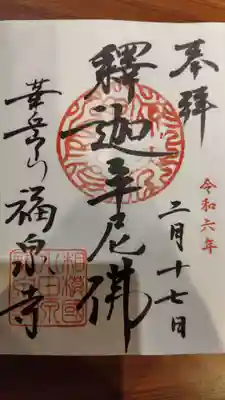 奉拝
令和六年
二月十七日
釋迦牟尼佛
華岳山
福泉寺
相模國